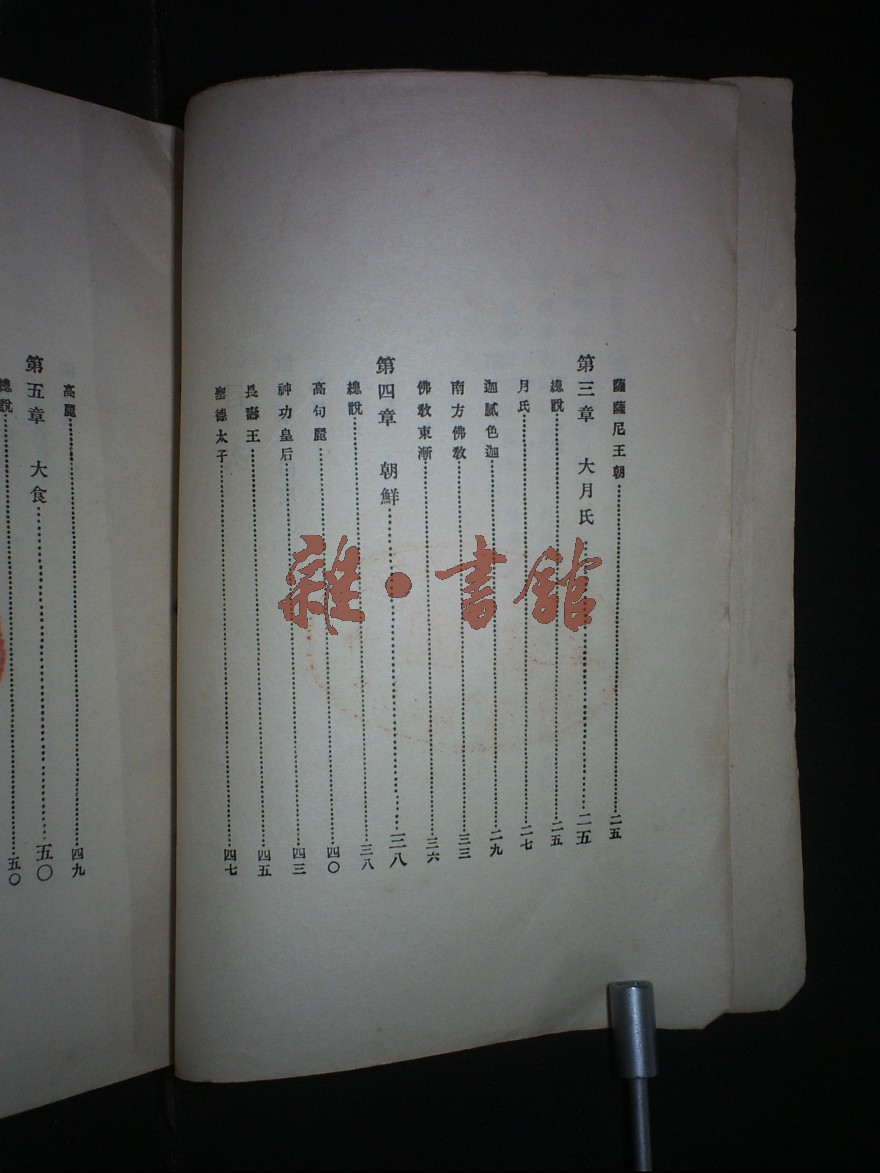 薩薩尼王朝……二五
第三章　大月氏……二五
總說……二五
月氏……二七
迦膩色迦……二九
南方佛教……三三
佛教東漸……三六
第四章　朝鮮……三八
總說……三八
高句麗……四〇
神功皇后……四三
長壽王……四五
聖德太子……四七
高麗……四九
第五章　大食……五〇
總說……五〇
雜•書館